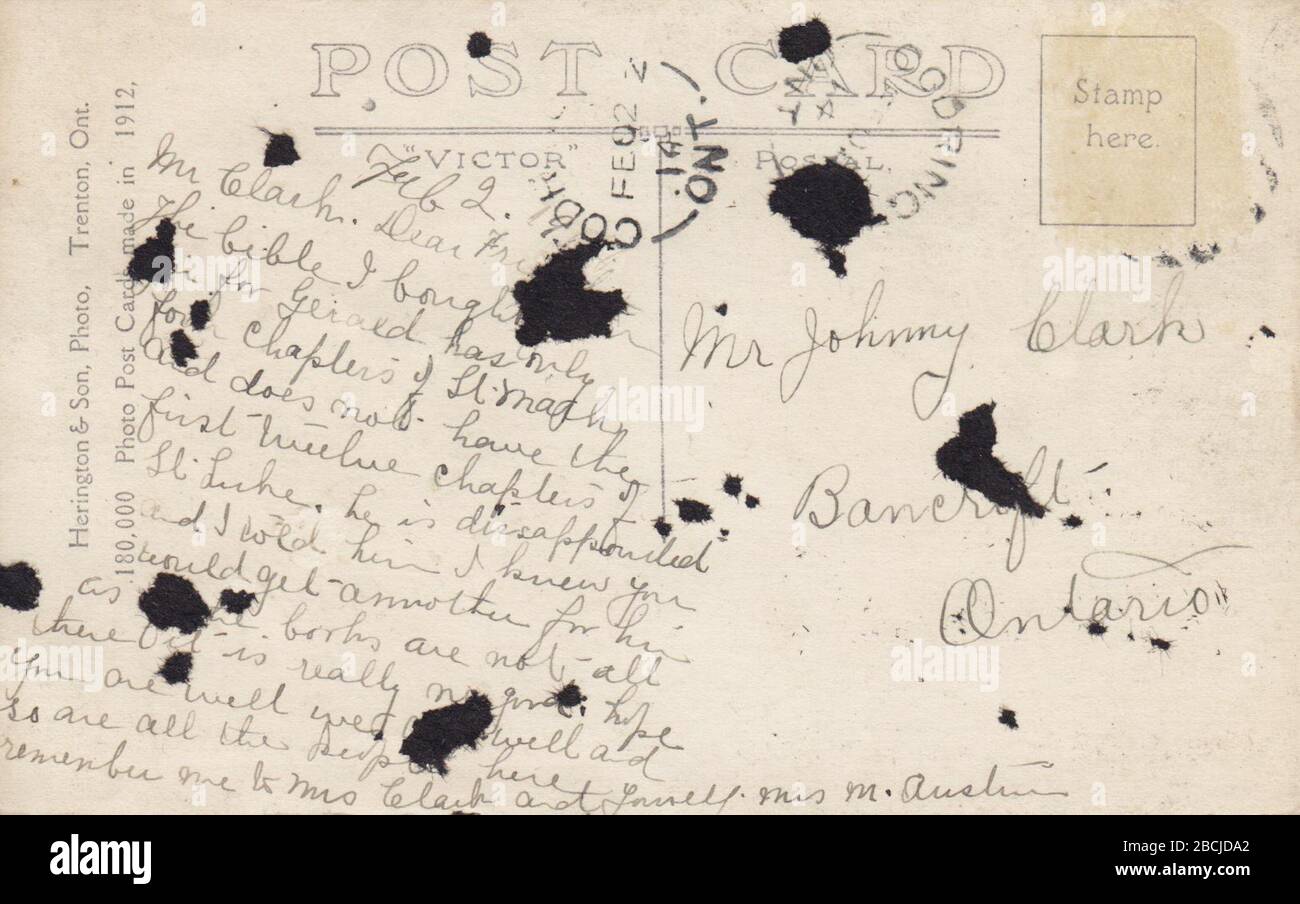 POST CARD
"VICTOR" POSTAL.
Stamp
here.
Herington & Son, Photo, Trenton, Ont.
180,000 Photo Post Cards made in 1912,
GODERICH
FE 02
14
ONT.
Feb 2.
Mr Clark. Dear
The bible I bought
for Gerald has only
four chapters of St.
and does not have the
first twelve chapters of
St. Luke. he is dissappointed
and I told him I knew you
would get annother for him
as the books are not all
there it is really no good. hope
you are well we are well and
so are all the people here
remember me to Mrs Clark and Lowell. Mrs M. Austin
Mr Johnny Clark
Bancroft
Ontario
alamy
Image ID: 2BCJDA2
www.alamy.com